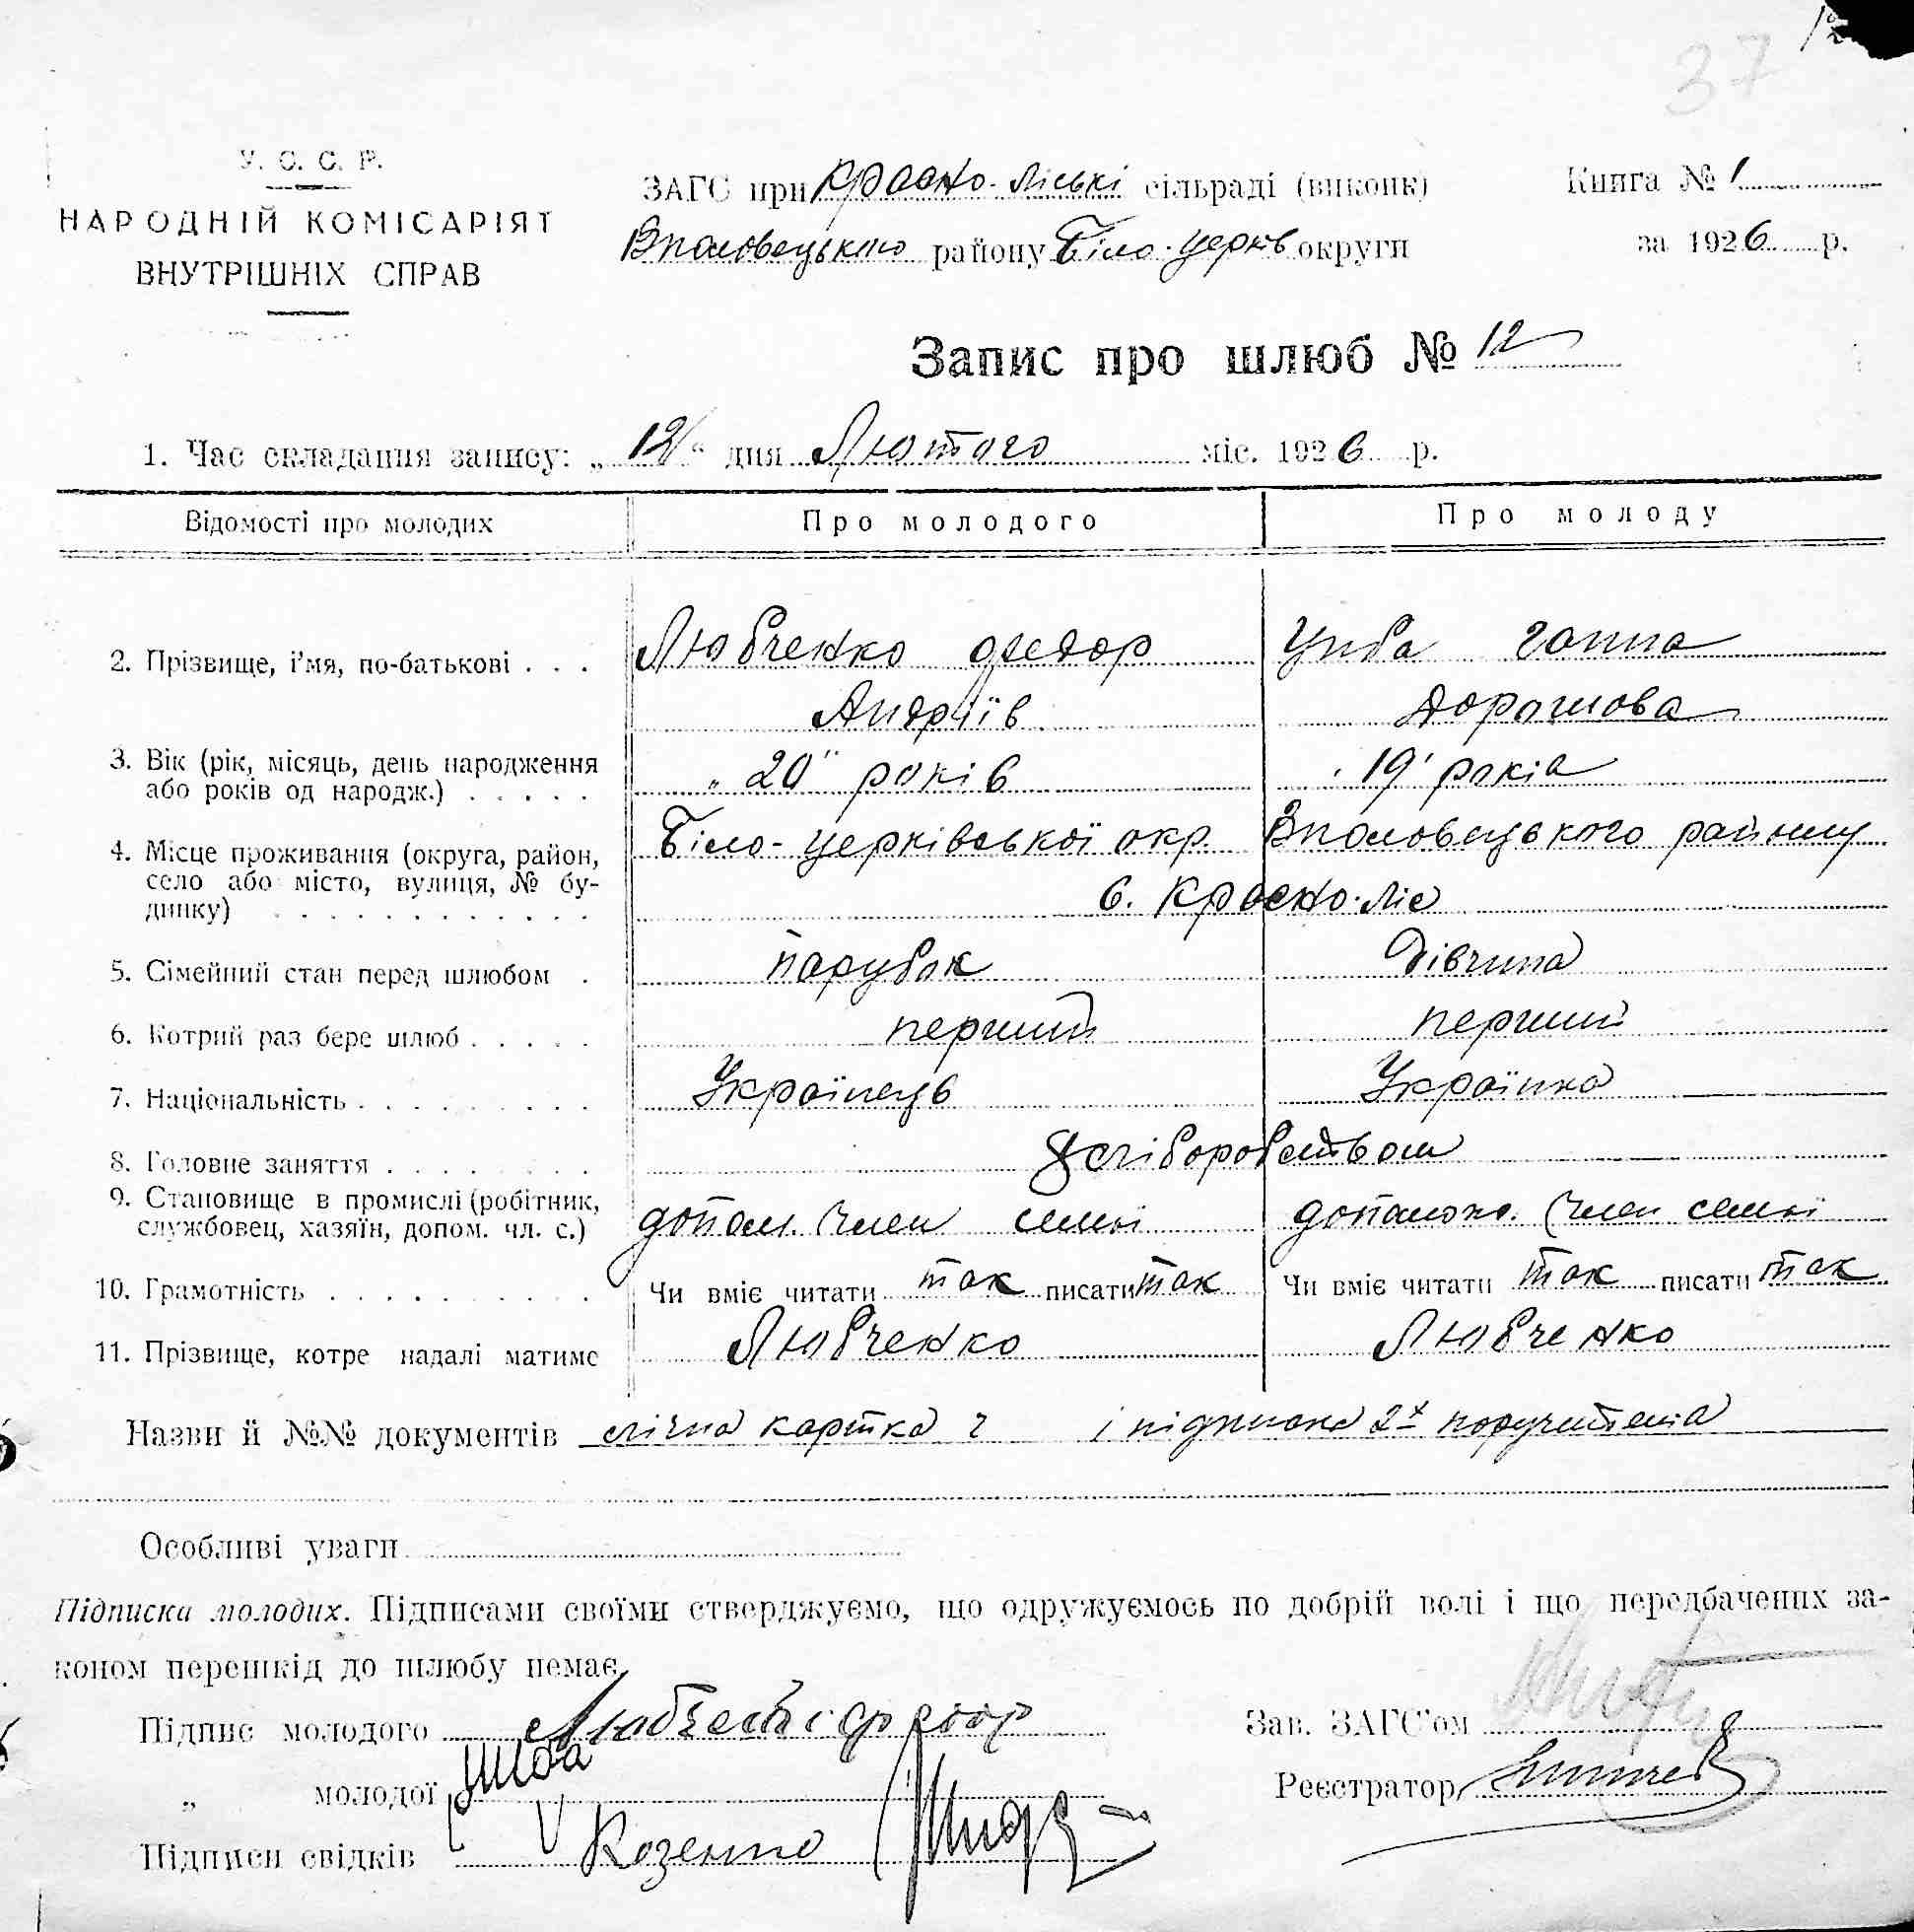 37
У. С. С. Р.
НАРОДНІЙ КОМІСАРІЯТ
ВНУТРІШНІХ СПРАВ
ЗАГС при Красно-ліські сільраді (виконк)
району Біло-церків округи
Книга № 1
за 1926 р.
Запис про шлюб № 12
1. Час складання запису: „12“ дня Лютого міс. 1926 р.
Відомості про молодих Про молодого Про молоду
2. Прізвище, і'мя, по-батькові . . . Любченко Федор Циба Ганна
Андріїв Дорошова
3. Вік (рік, місяць, день народження „20" років 19 років
або років од народж.) . . . . .
4. Місце проживання (округа, район, Біло-церківської окр. району
село або місто, вулиця, № бу-
динку) . . . . . . . . . . . . с. Красно-ліс
5. Сімейний стан перед шлюбом . парубок дівчина
6. Котрий раз бере шлюб . . . . . перший перший
7. Національність . . . . . . . . . Українець Українка
8. Головне заняття . . . . . . . . хліборобством
9. Становище в промислі (робітник, допом. член семьї допомож. член семьї
службовец, хазяїн, допом. чл. с.)
10. Грамотність . . . . . . . . . . Чи вміє читати так писати так Чи вміє читати так писати так
11. Прізвище, котре надалі матиме Любченко Любченко
Назви й №№ документів лічна картка ч і підписка 2х поручителів
Особливі уваги
Підписки молодих. Підписами своїми стверджуємо, що одружуємось по добрій волі і що передбачених за-
коном перешкід до шлюбу немає.
Підпис молодого Федор
Зав. ЗАГС'ом
„ молодої Циба
Реєстратор
Підписи свідків Козенко